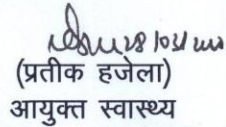 (प्रतीक हजेला)
आयुक्त स्वास्थ्य